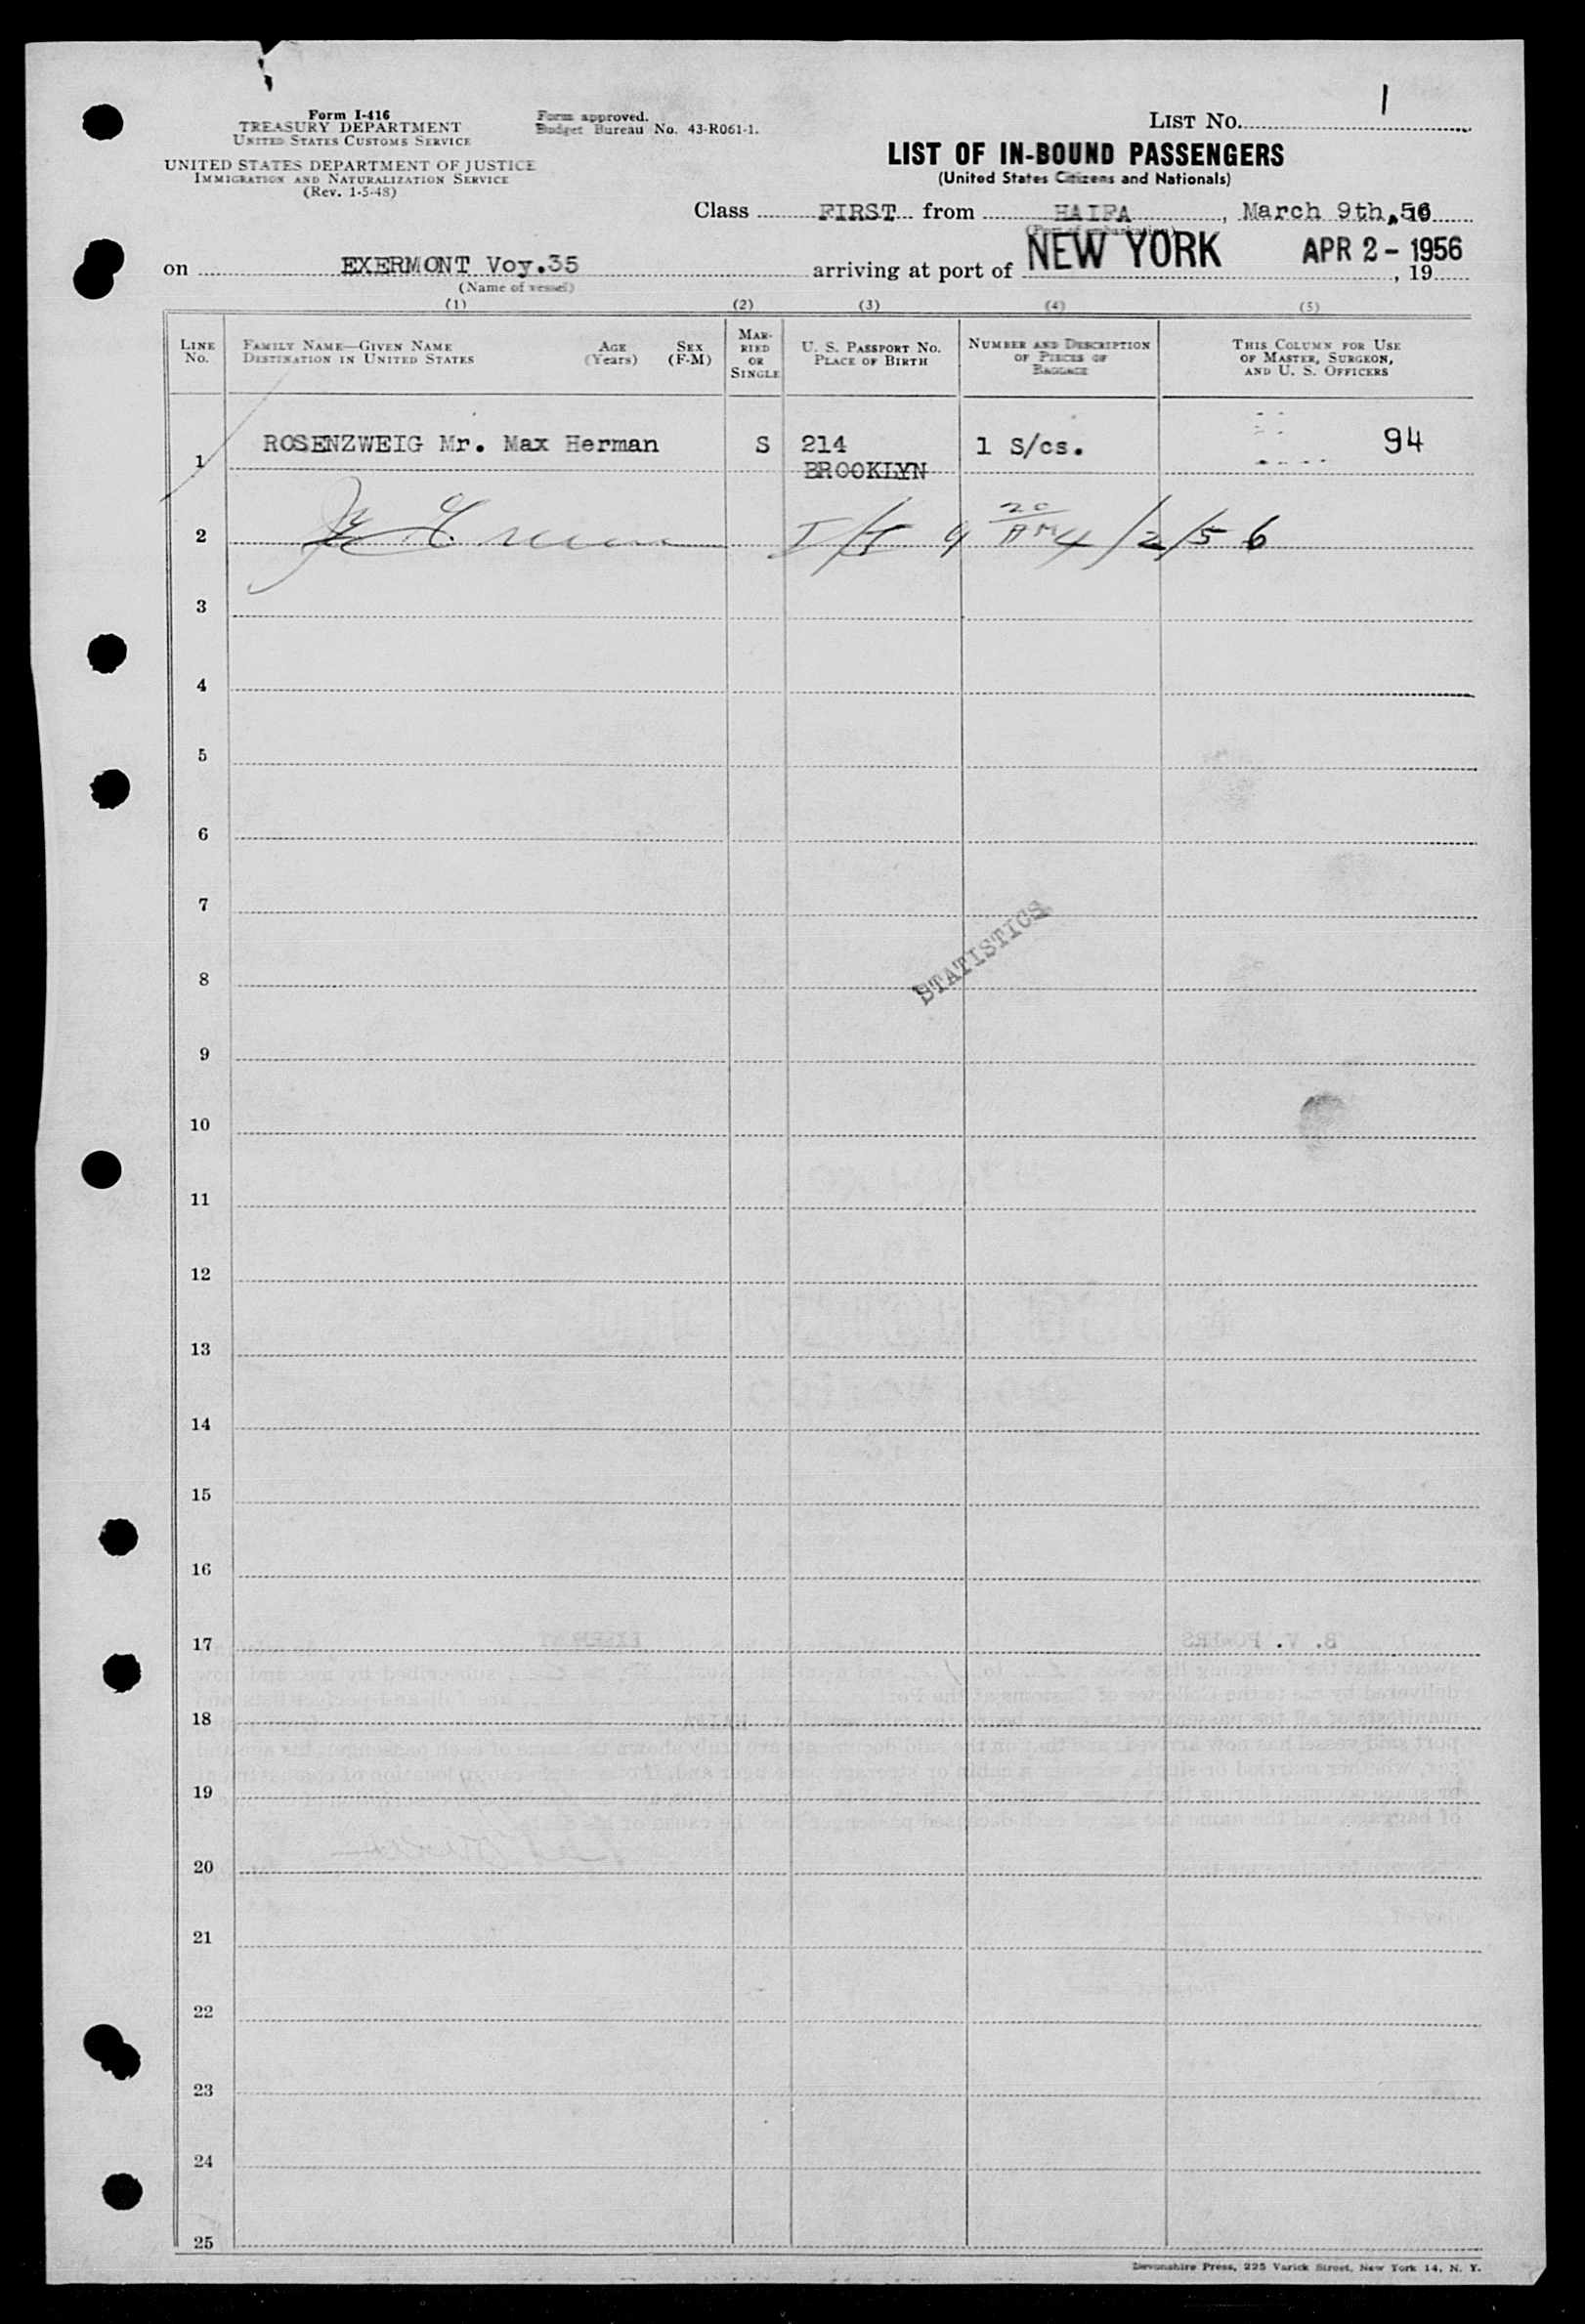 1
Form I-416
TREASURY DEPARTMENT
UNITED STATES CUSTOMS SERVICE
UNITED STATES DEPARTMENT OF JUSTICE
IMMIGRATION AND NATURALIZATION SERVICE
(Rev. 1-5-48)
Form approved.
Budget Bureau No. 43-R061-1.
LIST NO.
LIST OF IN-BOUND PASSENGERS
(United States Citizens and Nationals)
Class FIRST from HAIFA, March 9th, 56
(Port of embarkation)
on EXERMONT Voy.35 arriving at port of NEW YORK APR 2 - 1956, 19
(Name of vessel)
(1) (2) (3) (4) (5)
LINE NO.
FAMILY NAME—GIVEN NAME
DESTINATION IN UNITED STATES
AGE (Years)
SEX (F-M)
MARRIED OR SINGLE
U. S. PASSPORT NO.
PLACE OF BIRTH
NUMBER AND DESCRIPTION OF PIECES OF BAGGAGE
THIS COLUMN FOR USE OF MASTER, SURGEON, AND U. S. OFFICERS
1 ROSENZWEIG Mr. Max Herman S 214 1 S/cs. 94
BROOKLYN
2 9 20 AM 4/2/56
3
4
5
6
7
STATISTICS
8
9
10
11
12
13
14
15
16
17
18
19
20
21
22
23
24
25
Devonshire Press, 225 Varick Street, New York 14, N. Y.